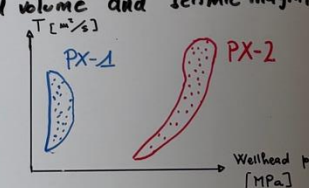 volume and seismic
T [m²/s]
PX-1
PX-2
Wellhead
[MPa]